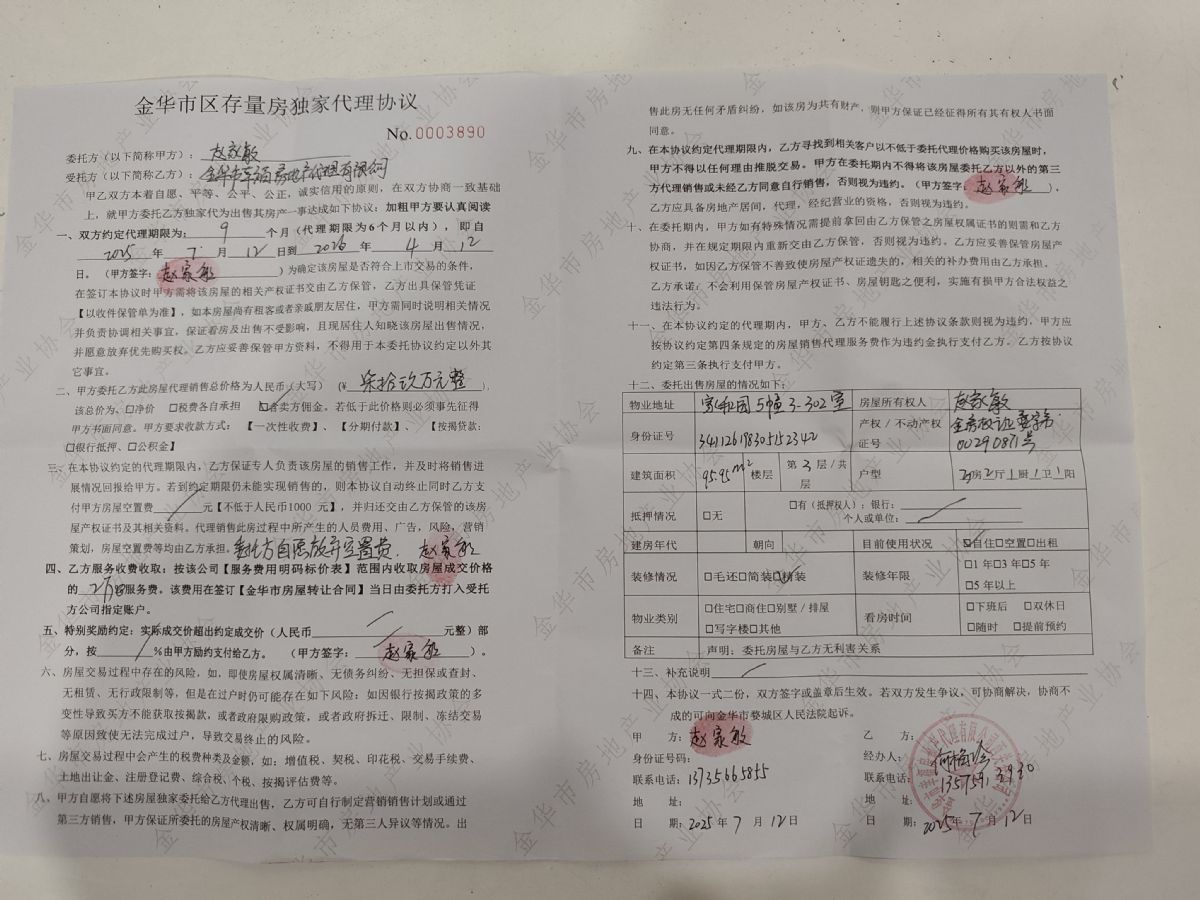 金华市区存量房独家代理协议
No.0003890
委托方（以下简称甲方）：赵家敏
受托方（以下简称乙方）：金华市 房地产代理有限公司
甲乙双方本着自愿、平等、公平、公正，诚实信用的原则，在双方协商一致基础
上，就甲方委托乙方独家代为出售其房产一事达成如下协议：加粗甲方要认真阅读
一、双方约定代理期限为：9个月（代理期限为6个月以内），即自
2025年7月12日到2026年4月12
日。（甲方签字：赵家敏）为确定该房屋是否符合上市交易的条件，
在签订本协议时甲方需将该房屋的相关产权证书交由乙方保管，乙方出具保管凭证
【以收件保管单为准】，如本房屋尚有租客或者亲戚朋友居住，甲方需同时说明相关情况
并负责协调相关事宜，保证看房及出售不受影响，且现居住人知晓该房屋出售情况，
并愿意放弃优先购买权。乙方应妥善保管甲方资料，不得用于本委托协议约定以外其
它事宜。
二、甲方委托乙方此房屋代理销售总价格为人民币（大写）（¥柒拾玖万元整），
该总价为、□净价 □税费各自承担 ☑含卖方佣金。若低于此价格则必须事先征得
甲方书面同意。甲方要求收款方式：【一次性收费】、【分期付款】、【按揭贷款：
□银行抵押、□公积金】
三、在本协议约定的代理期限内，乙方保证专人负责该房屋的销售工作，并及时将销售进
展情况回报给甲方。若到约定期限仍未能实现销售的，则本协议自动终止同时乙方支
付甲方房屋空置费／元【不低于人民币1000 元】，并归还交由乙方保管的该房
屋产权证书及其相关资料。代理销售此房过程中所产生的人员费用、广告，风险，营销
策划，房屋空置费等均由乙方承担。委托方自愿放弃空置费. 赵家敏
四、乙方服务收费收取：按该公司【服务费用明码标价表】范围内收取房屋成交价格
的 服务费。该费用在签订【金华市房屋转让合同】当日由委托方打入受托
方公司指定账户。
五、特别奖励约定：实际成交价超出约定成交价（人民币／元整）部
分，按／%由甲方励约支付给乙方。（甲方签字：赵家敏）。
六、房屋交易过程中存在的风险，如，即使房屋权属清晰、无债务纠纷、无担保或查封、
无租赁、无行政限制等，但是在过户时仍可能存在如下风险：如因银行按揭政策的多
变性导致买方不能获取按揭款，或者政府限购政策，或者政府拆迁、限制、冻结交易
等原因致使无法完成过户，导致交易终止的风险。
七、房屋交易过程中会产生的税费种类及金额，如：增值税、契税、印花税、交易手续费、
土地出让金、注册登记费、综合税、个税、按揭评估费等。
八、甲方自愿将下述房屋独家委托给乙方代理出售，乙方可自行制定营销销售计划或通过
第三方销售，甲方保证所委托的房屋产权清晰、权属明确，无第三人异议等情况。出
售此房无任何矛盾纠纷，如该房为共有财产，则甲方保证已经征得所有其有权人书面
同意。
九、在本协议约定代理期限内，乙方寻找到相关客户以不低于委托代理价格购买该房屋时，
甲方不得以任何理由推脱交易。甲方在委托期内不得将该房屋委托乙方以外的第三
方代理销售或未经乙方同意自行销售，否则视为违约。（甲方签字：赵家敏），
乙方应具备房地产居间，代理，经纪营业的资格，否则视为违约。
十、在委托期内，甲方如有特殊情况需提前拿回由乙方保管之房屋权属证书的则需和乙方
协商，并在规定期限内重新交由乙方保管，否则视为违约。乙方应妥善保管房屋产
权证书，如因乙方保管不善致使房屋产权证遗失的，相关的补办费用由乙方承担。
乙方承诺：不会利用保管房屋产权证书、房屋钥匙之便利，实施有损甲方合法权益之
违法行为。
十一、在本协议约定的代理期内，甲方、乙方不能履行上述协议条款则视为违约，甲方应
按协议约定第四条规定的房屋销售代理服务费作为违约金执行支付乙方。乙方按协议
约定第三条执行支付甲方。
十二、委托出售房屋的情况如下：
物业地址 家和园5幢3-302室 房屋所有权人 赵家敏
身份证号 341126198305152342 产权／不动产权证号 金房权证婺字第00290871号
建筑面积 95.95m² 楼层 第3层/共 层 户型 房2厅1厨1卫1阳
抵押情况 □无 □有（抵押权人）：银行：
个人或单位：
建房年代 朝向 目前使用状况 ☑自住□空置□出租
装修情况 □毛还□简装☑精装 装修年限 □1年□3年□5年
□5年以上
物业类别 □住宅□商住□别墅／排屋 看房时间 □下班后 □双休日
□写字楼□其他 □随时 □提前预约
备注 声明：委托房屋与乙方无利害关系
十三、补充说明
十四、本协议一式二份，双方签字或盖章后生效。若双方发生争议，可协商解决，协商不
成的可向金华市婺城区人民法院起诉。
甲 方：赵家敏 乙 方：
身份证号码： 经办人：何梅珍
联系电话：13735665815 联系电话：13575913930
地 址： 地 址：
日 期：2025年7月12日 日 期：2025年7月12日